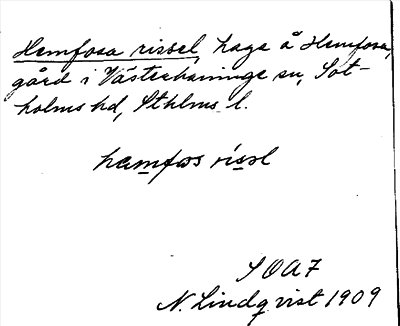 Hemfosa rissel, hage å Hemfosa,
gård i Västerhaninge sn, Sot-
holms hd, Sthlms l.
hemfos rissl
SOA 7
N. Lindqvist 1909